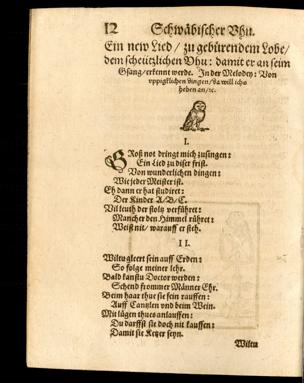 12 Schwäbischer Vhu.
Ein new Lied / zu gebürendem Lobe /
dem scheützlichen Vhu: damit er an seim
Gsang / erkennt werde. In der Melodey: Von
vppigklichen dingen / so will ichs
heben an / ec.
I.
GRoß not dringt mich zusingen:
Ein Lied zu diser frist.
Von wunderlichen dingen:
Wie jeder Meister ist.
Eh dann er hat studiret:
Der Kinder A/B/C.
Vil leuth der stoltz verführet:
Mancher den Himmel rühret:
Weißt nit / warauff er steh.
II.
Wiltu gleert sein auff Erden:
So folge meiner lehr.
Bald kanstu Doctor werden:
Schend frommer Männer Ehr.
Beim haar thut sie fein rauffen:
Auff Cantzlen vnd beim Wein.
Mit lügen thues anlauffen:
Du darffst sie doch nit kauffen:
Damit sie Ketzer seyn.
Wiltu